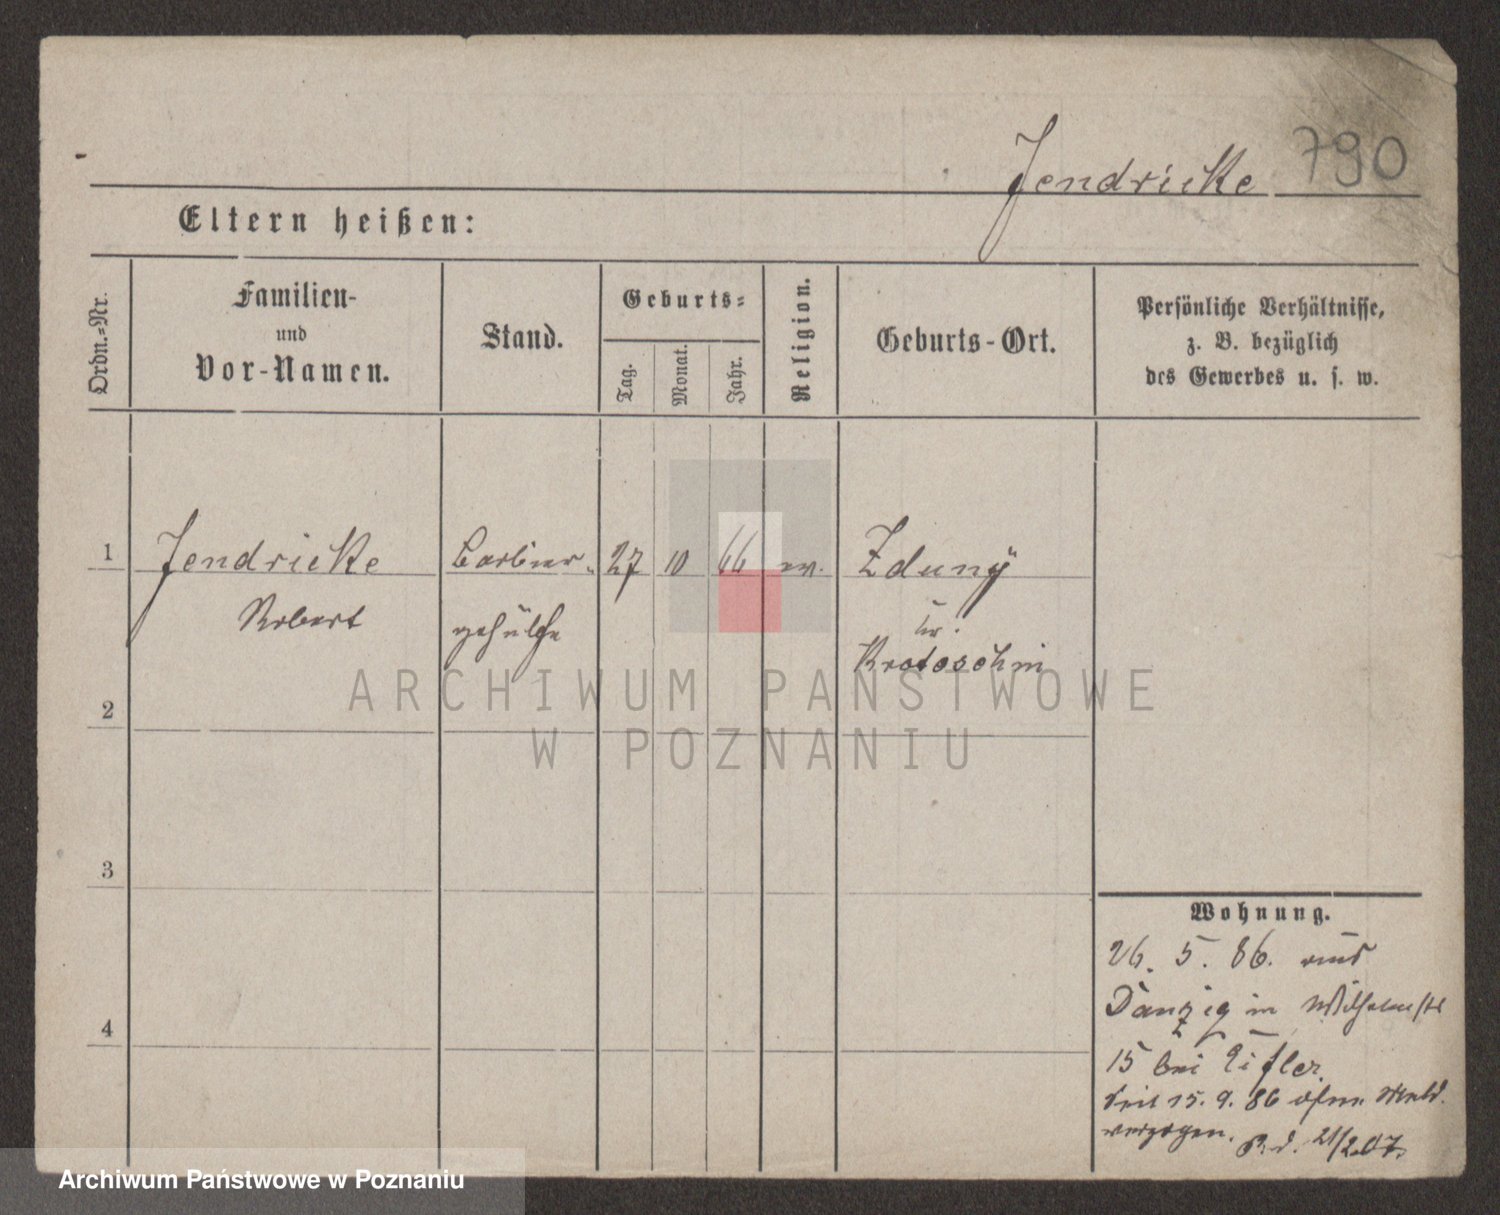 Jendricke 790
Eltern heißen:
Ordn.=Nr.
Familien-
und
Vor-Namen.
Stand.
Geburts=
Tag.
Monat.
Jahr.
Religion.
Geburts-Ort.
Persönliche Verhältnisse,
z. B. bezüglich
des Gewerbes u. s. w.
1 Jendricke Barbier- 27 10 66 ev. Zduny
Robert gehülfe
Kr.
Krotoschin
ARCHIWUM PAŃSTWOWE
W POZNANIU
2
3
4
Wohnung.
26. 5. 86. aus
Danzig in Wilhelmstr
15 bei
Seit 15. 9. 86 ohne Meld.
verzogen. P. d. 21/2.07.
Archiwum Państwowe w Poznaniu